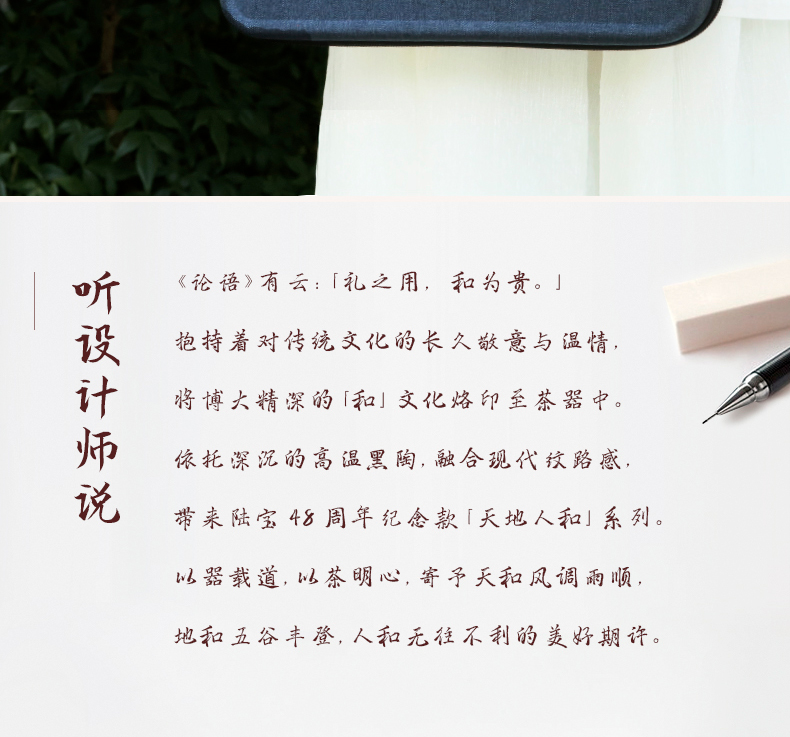 听设计师说
《论语》有云:「礼之用，和为贵。」
抱持着对传统文化的长久敬意与温情,
将博大精深的「和」文化烙印至茶器中。
依托深沉的高温黑陶,融合现代纹路感,
带来陆宝48周年纪念款「天地人和」系列。
以器载道,以茶明心,寄予天和风调雨顺,
地和五谷丰登,人和无往不利的美好期许。